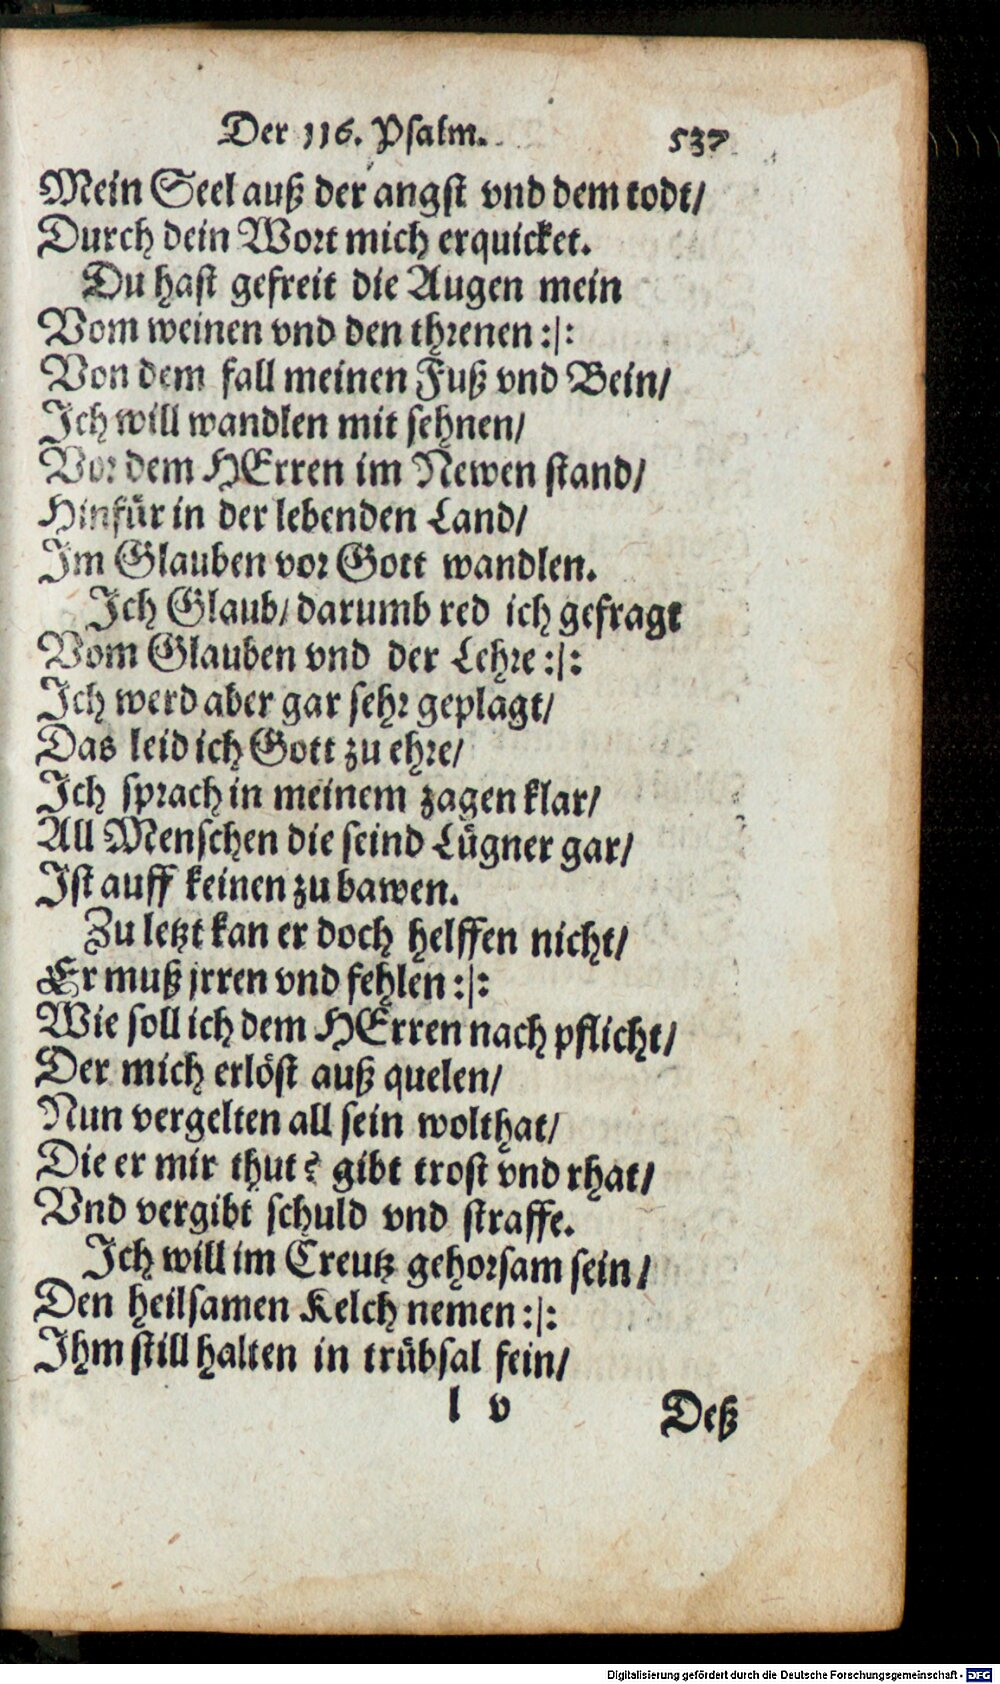 Der 116. Psalm. 537
Mein Seel auß der angst vnd dem todt/
Durch dein Wort mich erquicket.
Du hast gefreit die Augen mein
Vom weinen vnd den threnen :|:
Von dem fall meinen Fuß vnd Bein/
Ich will wandlen mit sehnen/
Vor dem HErren im Newen stand/
Hinfür in der lebenden Land/
Im Glauben vor Gott wandlen.
Ich Glaub/ darumb red ich gefragt
Vom Glauben vnd der Lehre :|:
Ich werd aber gar sehr geplagt/
Das leid ich Gott zu ehre/
Ich sprach in meinem zagen klar/
All Menschen die seind Lügner gar/
Ist auff keinen zu bawen.
Zu letzt kan er doch helffen nicht/
Er muß jrren vnd fehlen :|:
Wie soll ich dem HErren nach pflicht/
Der mich erlöst auß quelen/
Nun vergelten all sein wolthat/
Die er mir thut? gibt trost vnd rhat/
Vnd vergibt schuld vnd straffe.
Ich will im Creutz gehorsam sein/
Den heilsamen Kelch nemen :|:
Ihm still halten in trübsal fein/
l v Deß
Digitalisierung gefördert durch die Deutsche Forschungsgemeinschaft - DFG